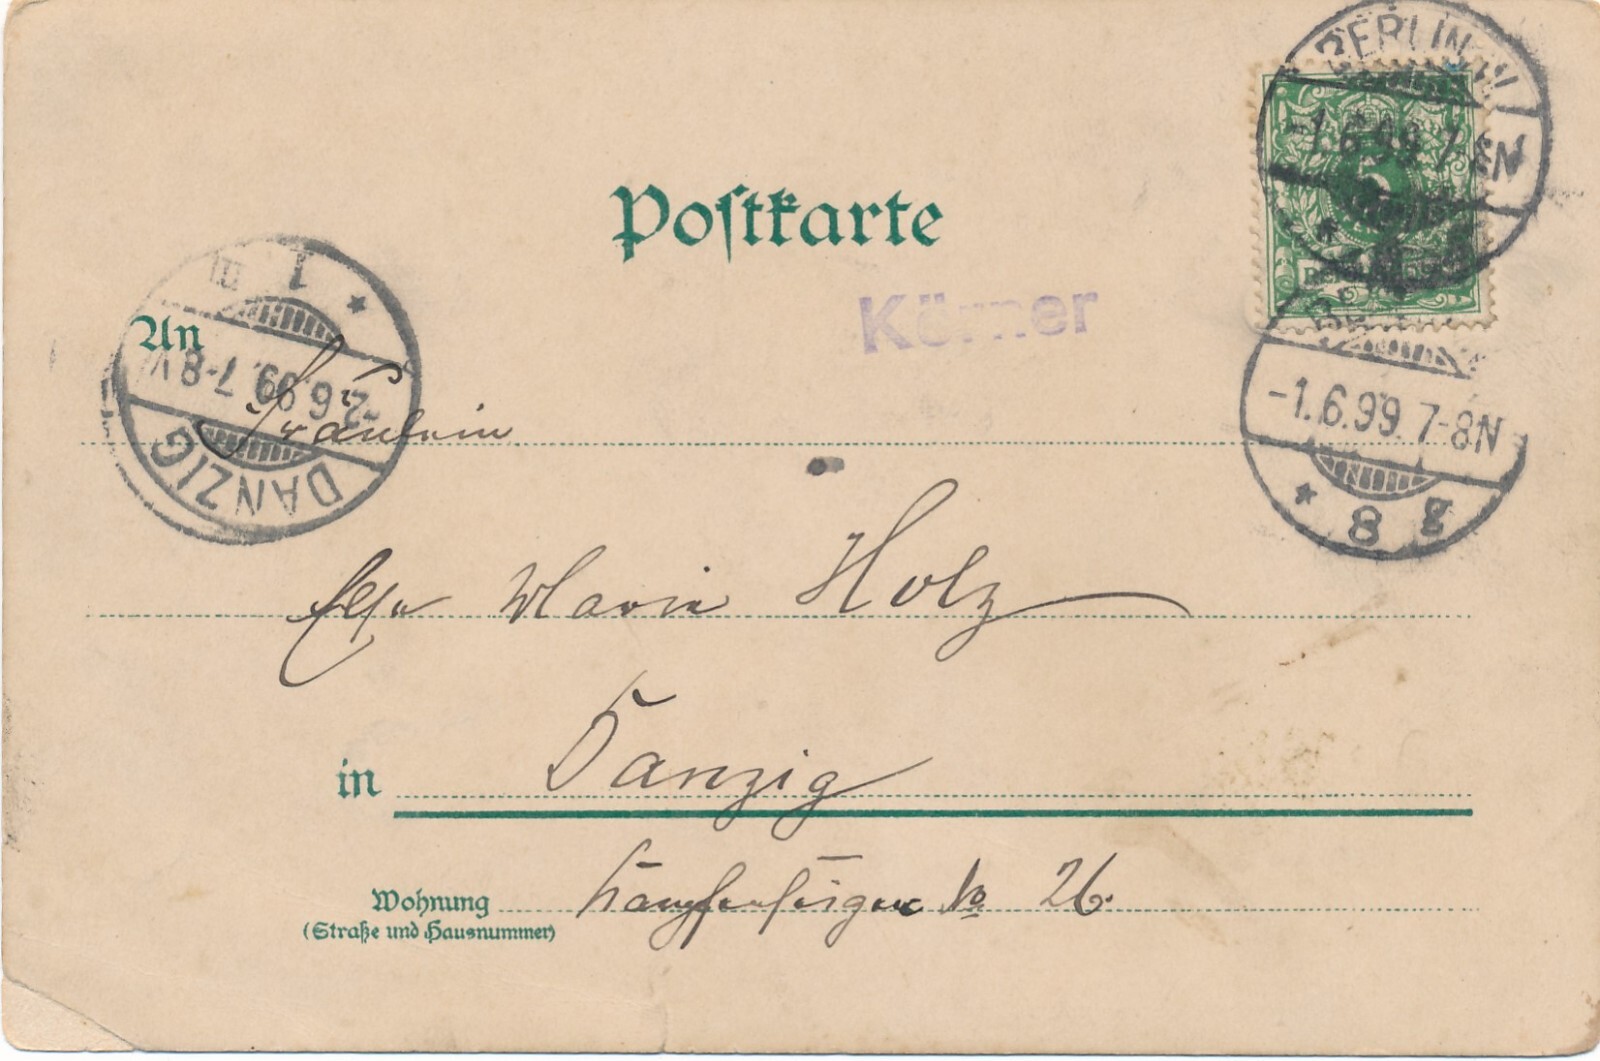 Postkarte
BERLIN W
-1.6.99 7-8N
Körner
An
DANZIG
-2.6.99. 7-8V
1
Fräulein
-1.6.99. 7-8N
* 8
Marie Holz
in Danzig
No 26.
Wohnung
(Straße und Hausnummer)